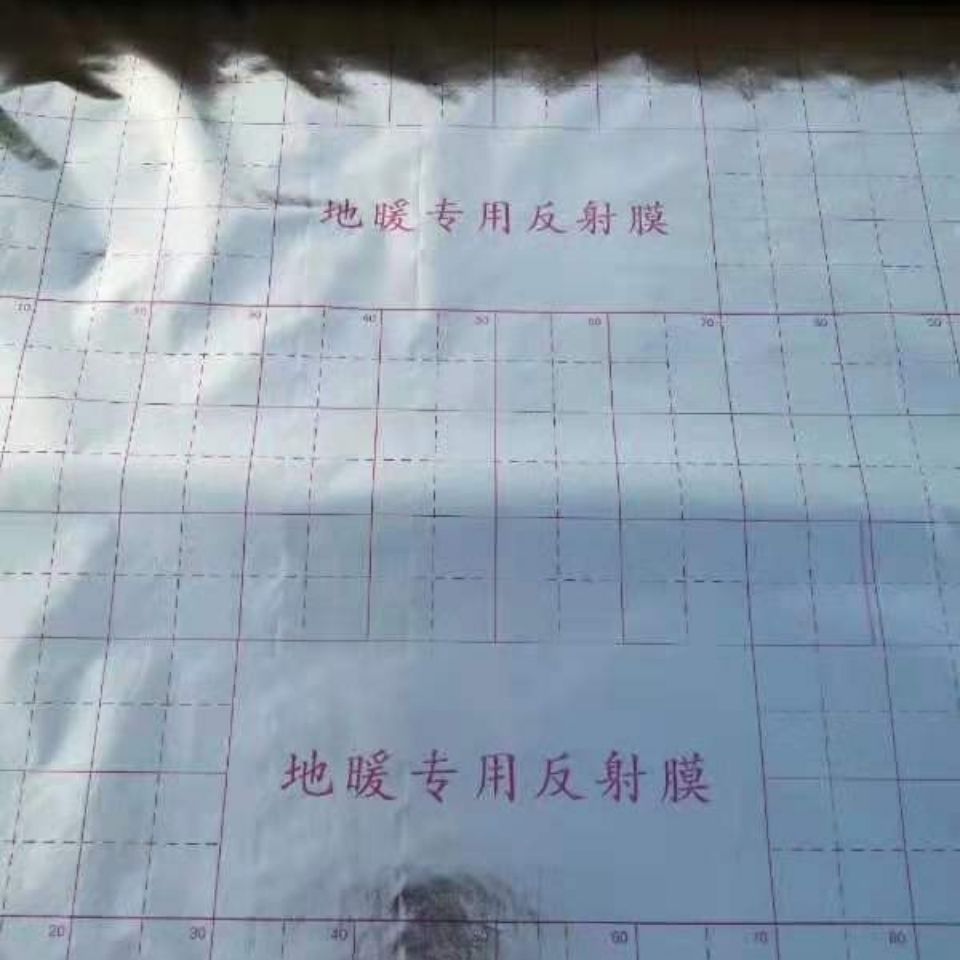 地暖专用反射膜
20 30 40 50 60 70 80 90
地暖专用反射膜
20 30 40 50 60 70 80